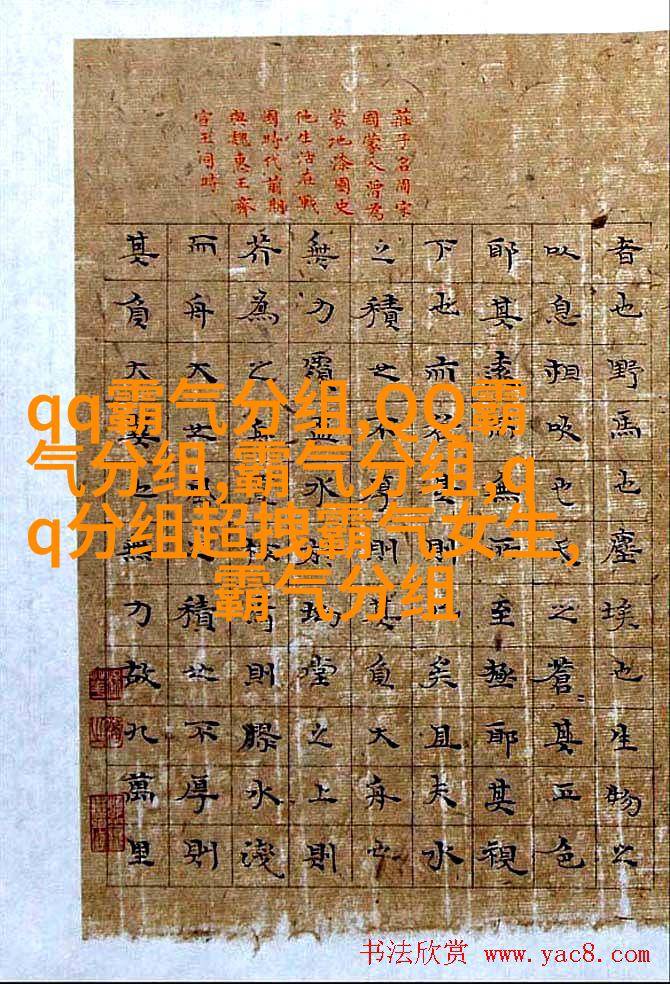 莊子名周宋
國蒙人曾為
蒙地漆園史
他生活在戰
國時代前期
與魏惠王齊
宣王同時
者也野馬也塵埃也生物之
以息相吹也之蒼其正色
耶其遠而無所至極耶其視
下也而若則矣且夫水
之積也不厚則其負大舟也
無力覆盃水於坳堂之上則
芥為之則膠水淺
而舟大也積也不厚則
其負大翼也無力故九萬里
qq霸气分组,QQ霸
气分组,霸气分组,q
q分组超拽霸气女生,
霸气分组
书法欣赏 www.yac8.com